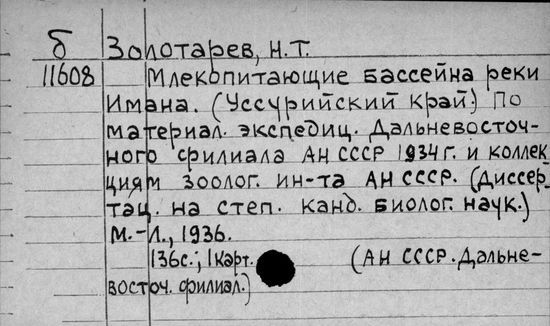 б Золотарев, Н.Т.
11608 Млекопитающие бассейна реки
Имана. (Уссурийский край.) По
материал. экспедиц. Дальневосточ-
ного филиала АН СССР 1934 г. и коллек
циям зоолог. ин-та АН СССР. (Диссер-
тац. на степ. канд. биолог. наук.)
М.-Л., 1936.
136с.; 1 карт. (АН СССР. Дальне-
восточ. филиал.)